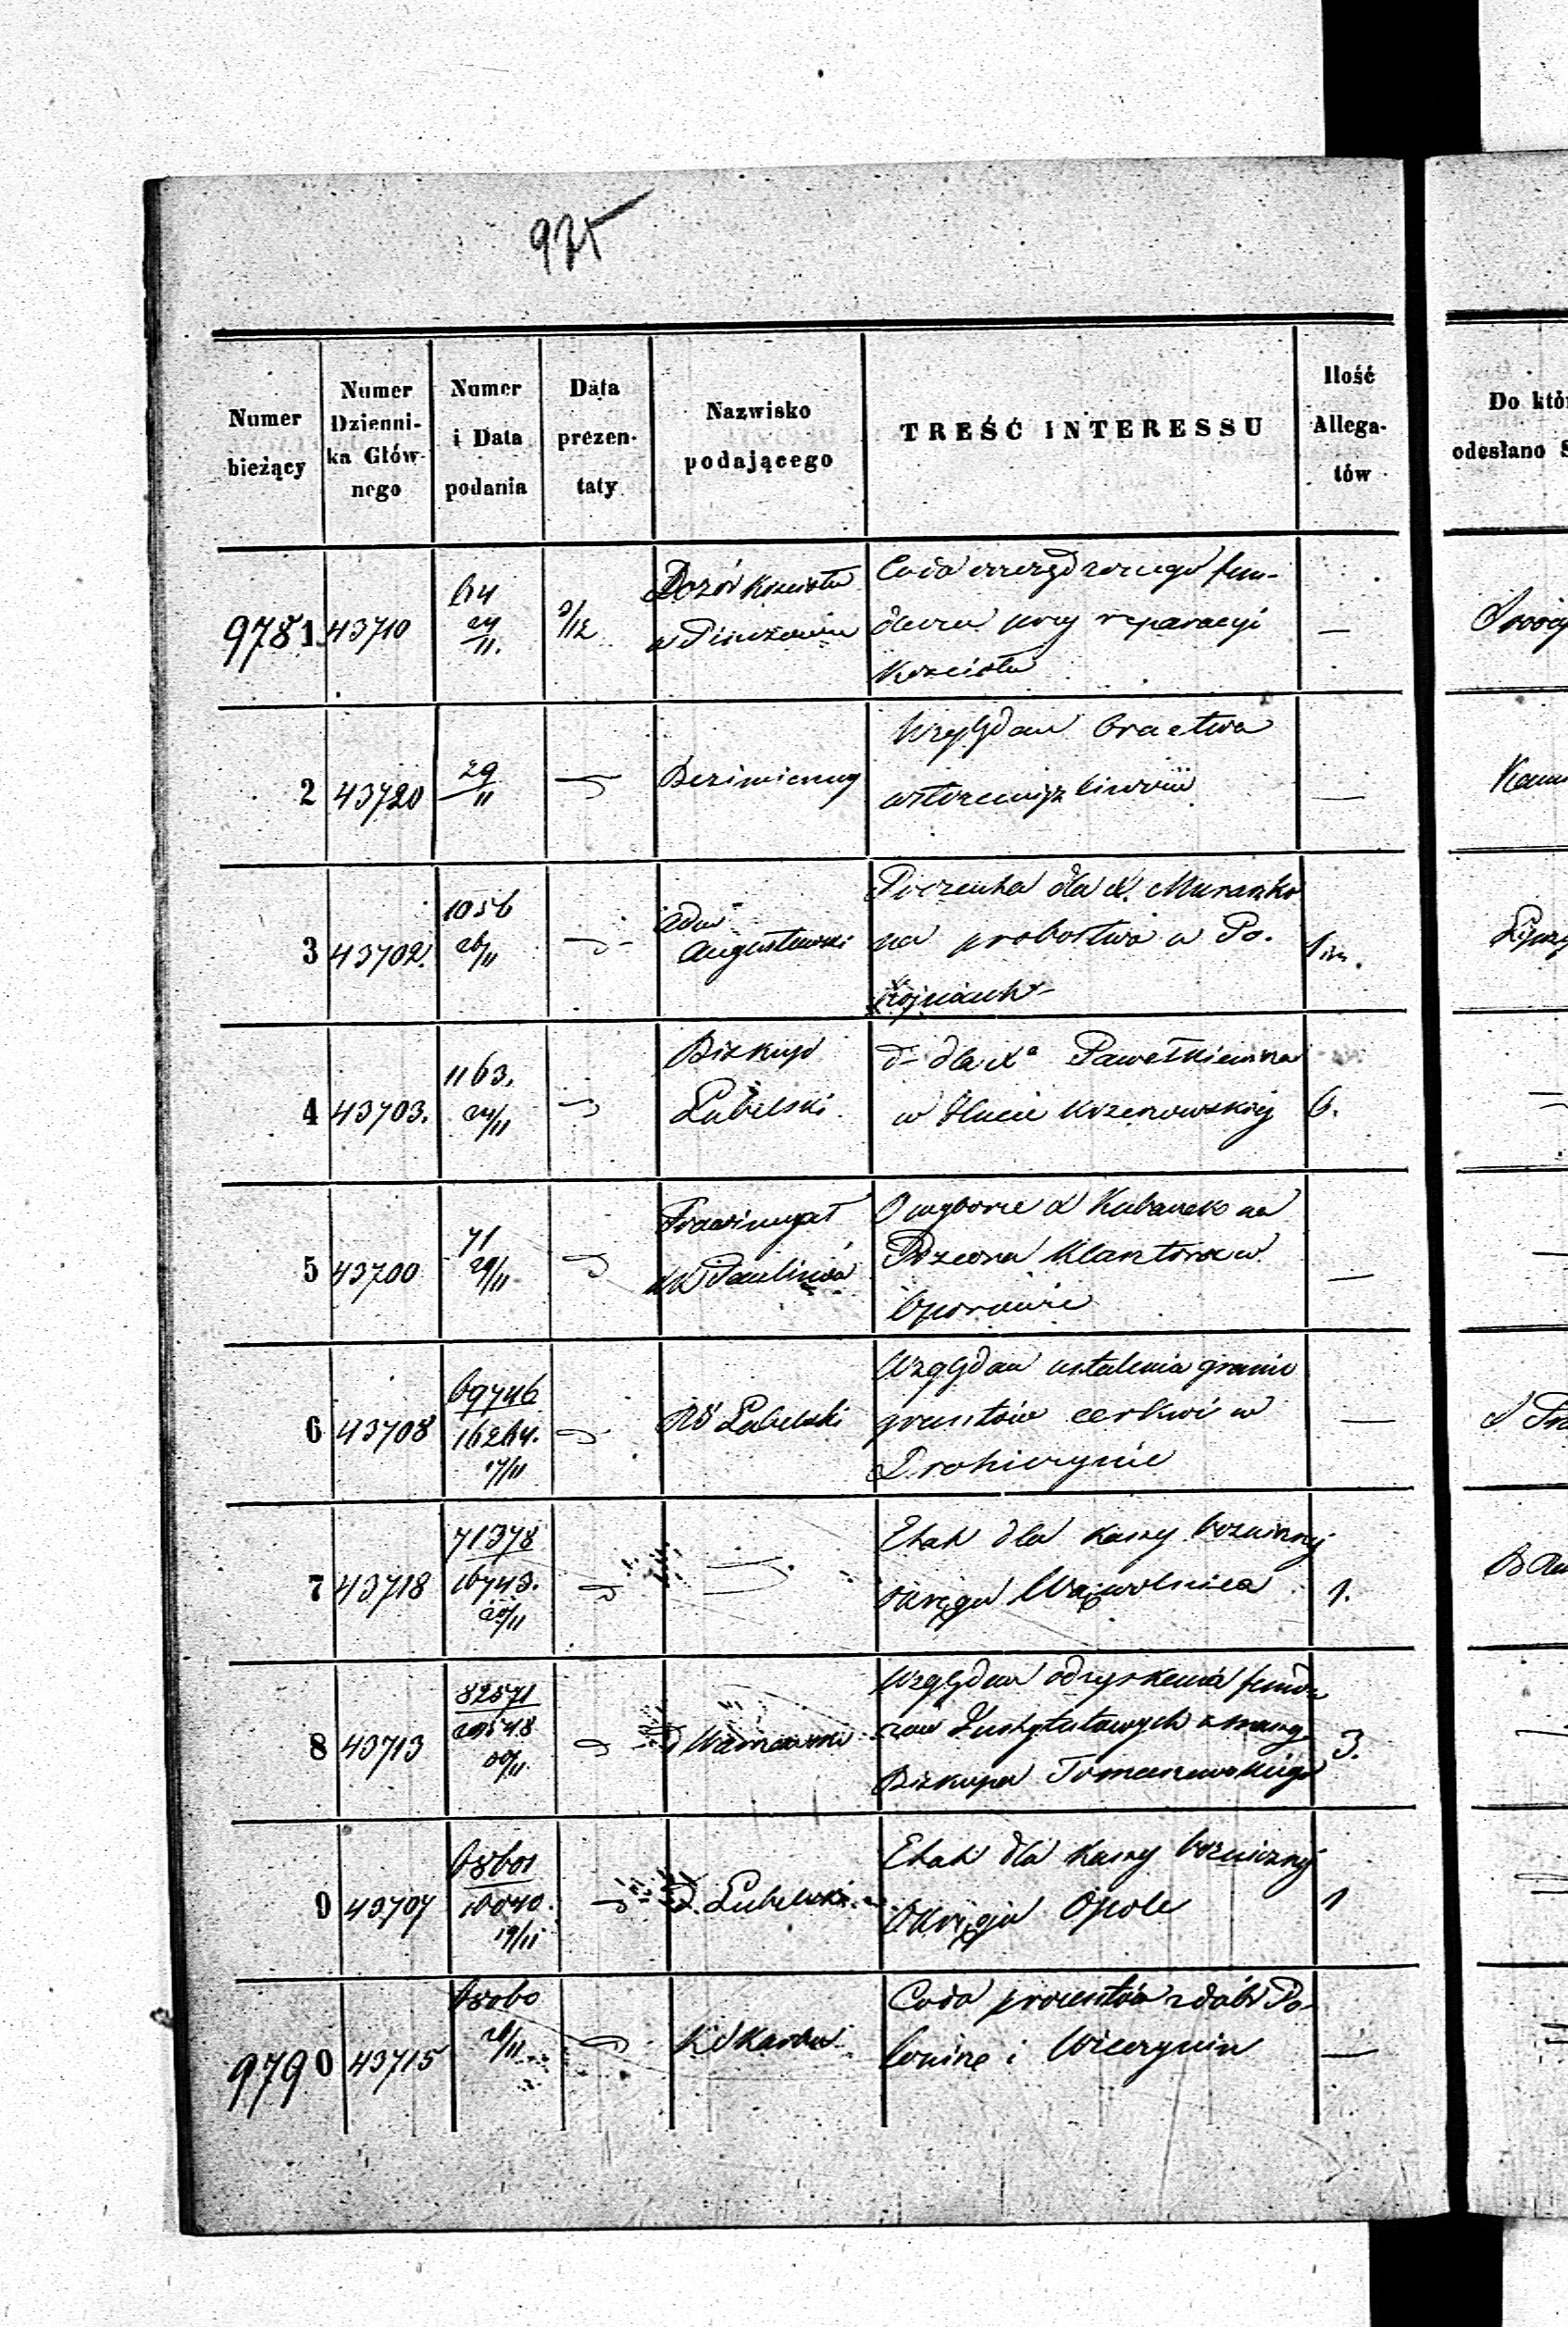 975
Numer bieżący
Numer Dzienni- ka Głów- nego
Numer i Data podania
Data prezen- taty
Nazwisko podającego
TREŚĆ INTERESSU
Ilość Allega- tów
Do któ
odesłano S
9781. 43710 64 24/11. 3/12 Dozór Kościoła
w Pinczowie
Co do urzędzonego fun-
duszu przy reparacyi —
Kościoła
2 43720 29/11 Bezimienny
Względem Bractwa
wstrzemięźliwości —
3 43702. 1056 26/11 Adm
Augustowski
Prezenta dla X. Muraszko
na probostwo w Po-
4 43703. 1163. 24/11 Biskup
Lubelski
d– dla Xa Pawełkiewicza
w Hucie Krzeszowskiej 6.
5 43700 71 29/11 Prowincyał
XX Paulinów
O wyborze X Kubanek na
Przeora Klasztoru w —
Oporowie
6 43708 69746 16264. 17/11 RG Lubelski
Względem ustalenia granic
gruntów cerkwi w —
Drohiczynie
7 43718 71378 16743. 20/11
Etat dla Kassy bożniczej
Okręgu Wąwolnica 1.
8 43713 82571 29548 30/11 d Warszawski
Względem odzyskania fundu
szów Instytutowych z massy 3.
Biskupa Tomaszewskiego
9 43707 68601 16040. 19/11 d. Lubelski
Etat dla Kassy bożniczej
Okręgu Opole 1
9790 43715 68060 26/11 K d Skarbu
Co do procentów z dóbr Po-
i Wierzynin —